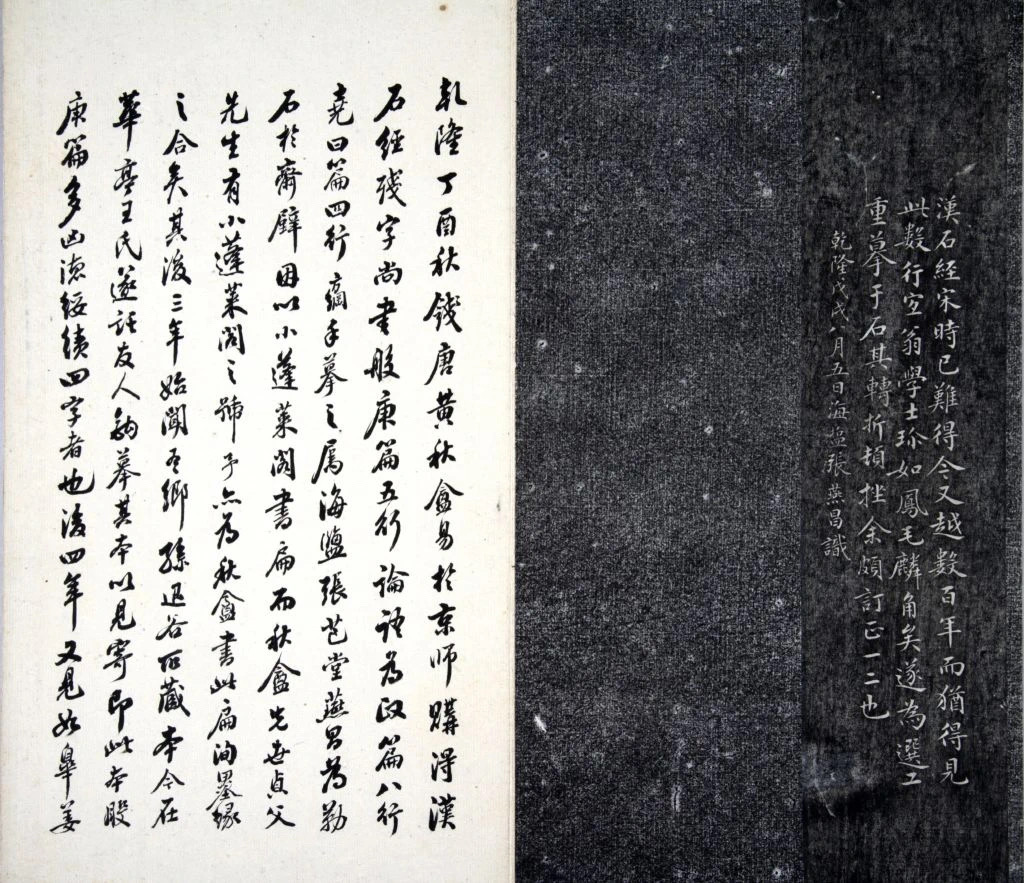 漢石經宋時已難得今又越數百年而猶得見
此數行宜翁學士珍如鳳毛麟角矣遂為選工
重摹于石其轉折頓挫余頗訂正一二也
乾隆戊戌八月五日海鹽張燕昌識
乾隆丁酉秋錢唐黃秋盦易於京師購得漢
石經殘字尚書般庚篇五行論語為政篇八行
堯曰篇四行手摹之属海鹽張芑堂燕昌為勒
石於齋壁因以小蓬萊閣書扁而秋盦先世貞父
先生有小蓬萊閣之號予亦為秋盦書此扁洵墨緣
之合矣其後三年始聞吾鄉孫退谷所藏本今在
華亭王氏遂託友人鈎摹其本以見寄即此本般
庚篇多凶德綏績四字者也後四年又見如皐姜